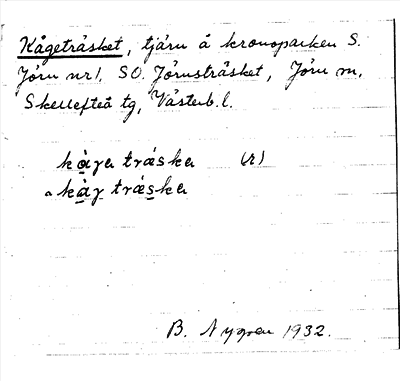 Kågeträsket, tjärn å kronoparken S.
Jörn nr 1, SO. Jörnsträsket, Jörn sn,
Skellefteå tg, Västerb. l.
kàga tráska (r)
kàg tráska
B. Nygren 1932.